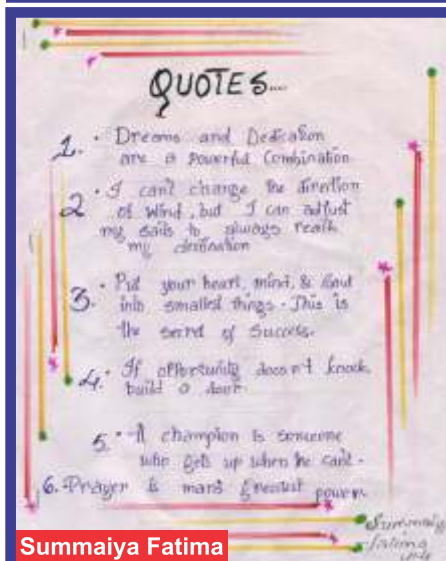 QUOTES....
1. • Dreams and Dedication
are a Powerful Combination
2 • I can't change the direction
of Wind, but I can adjust
my sails to always reach
my destination
3. • Put your heart, mind, & Soul
into smallest things. This is
the secret of Success.
4. • If opportunity doesn't knock
build a door.
5. • A champion is someone
who gets up when he can't.
6. Prayer is man's greatest power.
Summaiya
fatima
Summaiya Fatima